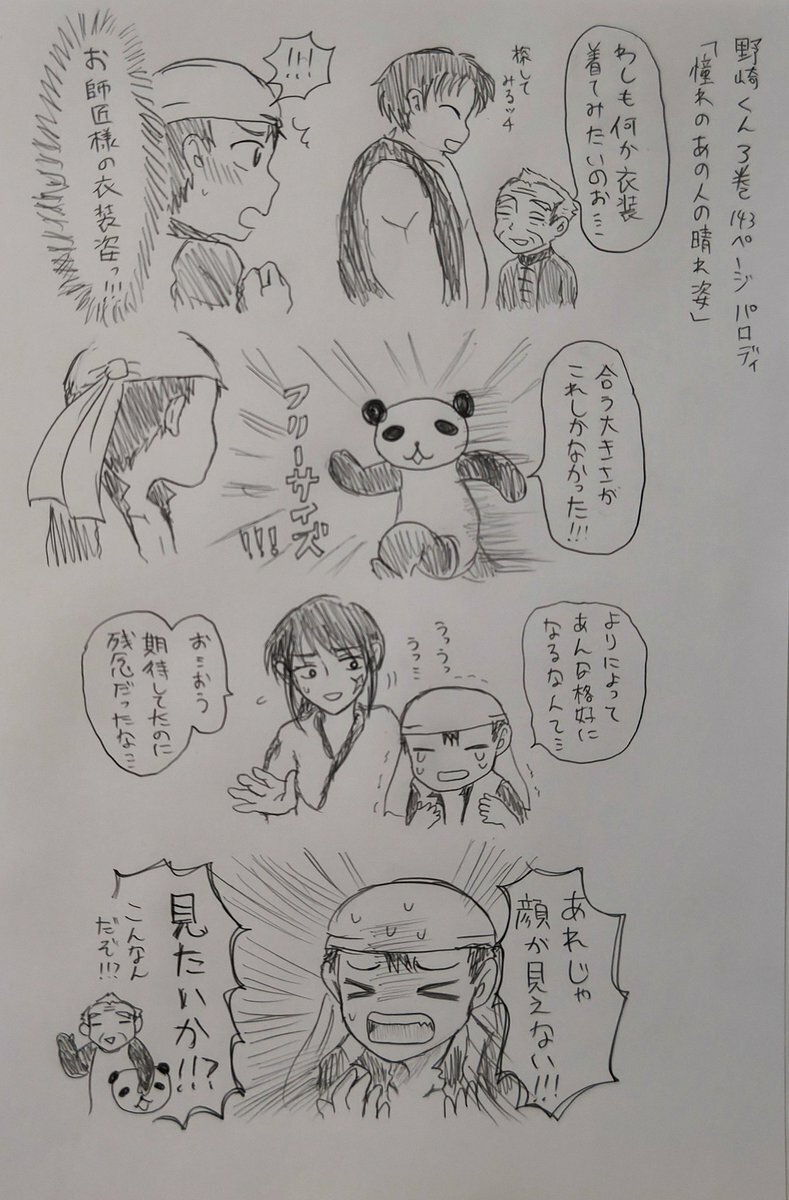 野崎くん3巻 143ページ パロディ
「憧れのあの人の晴れ姿」
わしも何か衣装
着てみたいのお…
探して
みるッチ
!!!
お師匠様の衣装姿っ!!!
合う大きさが
これしかなかった!!!
フリーサイズ
!!!
よりによって
あんな格好に
なるなんて…
うっうっ
うっ…
お…おう
期待してたのに
残念だったな…
あれじゃ
顔が見えない!!!
見たいか!!?
こんなん
だぞ!!?